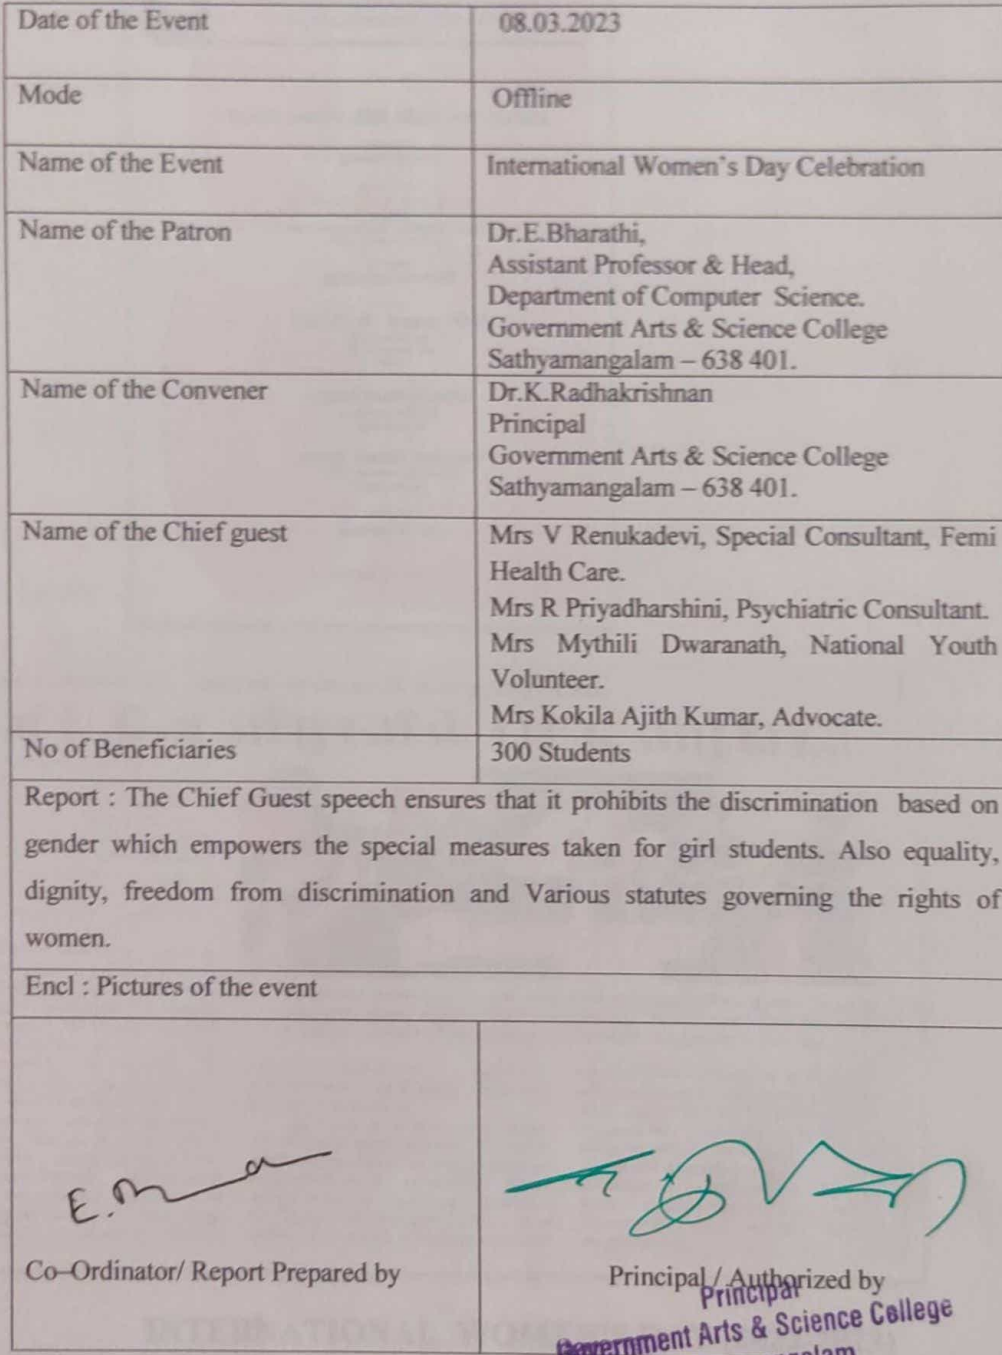 Date of the Event 08.03.2023
Mode Offline
Name of the Event International Women's Day Celebration
Name of the Patron Dr.E.Bharathi,
Assistant Professor & Head,
Department of Computer Science.
Government Arts & Science College
Sathyamangalam – 638 401.
Name of the Convener Dr.K.Radhakrishnan
Principal
Government Arts & Science College
Sathyamangalam – 638 401.
Name of the Chief guest Mrs V Renukadevi, Special Consultant, Femi
Health Care.
Mrs R Priyadharshini, Psychiatric Consultant.
Mrs Mythili Dwaranath, National Youth
Volunteer.
Mrs Kokila Ajith Kumar, Advocate.
No of Beneficiaries 300 Students
Report : The Chief Guest speech ensures that it prohibits the discrimination based on
gender which empowers the special measures taken for girl students. Also equality,
dignity, freedom from discrimination and Various statutes governing the rights of
women.
Encl : Pictures of the event
E.
Co-Ordinator/ Report Prepared by
Principal / Authorized by
Principal
Government Arts & Science College